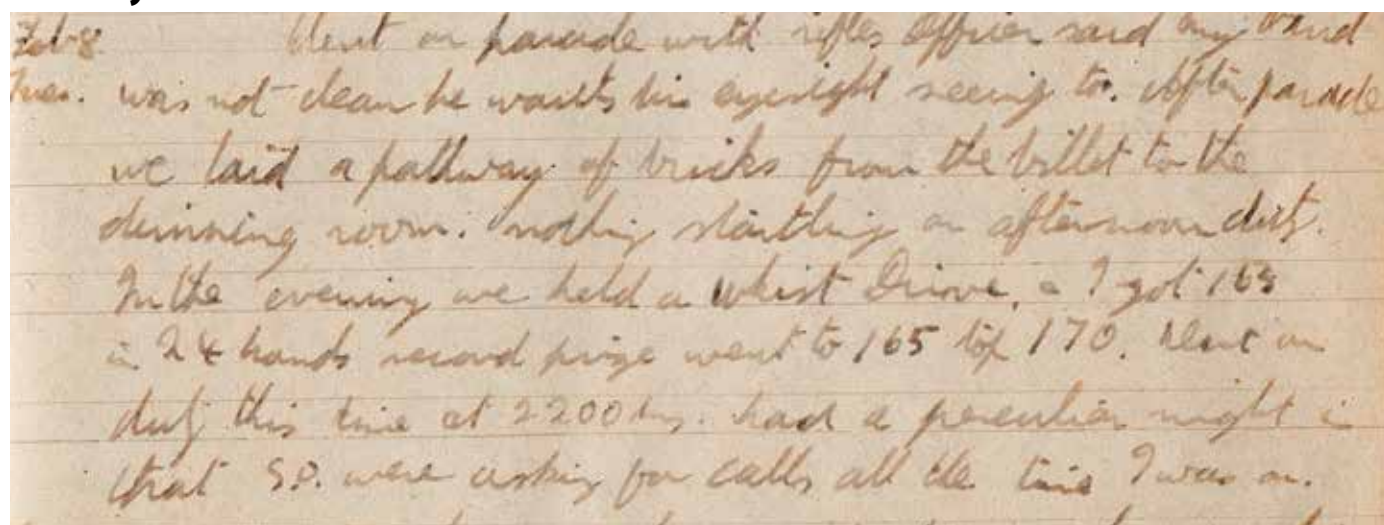 Feb 8 Went on parade with rifles Officer said my band
Tues. was not clean he wants his eyesight seeing to. After parade
we laid a pathway of bricks from the billet to the
dinning room. nothing startling on afternoon duty.
In the evening we held a Whist Drive, I got 163
in 24 hands second prize went to 165 top 170. Went on
duty this time at 2200 hrs. had a peculiar night in
that S.P. were asking for calls all the time I was on.